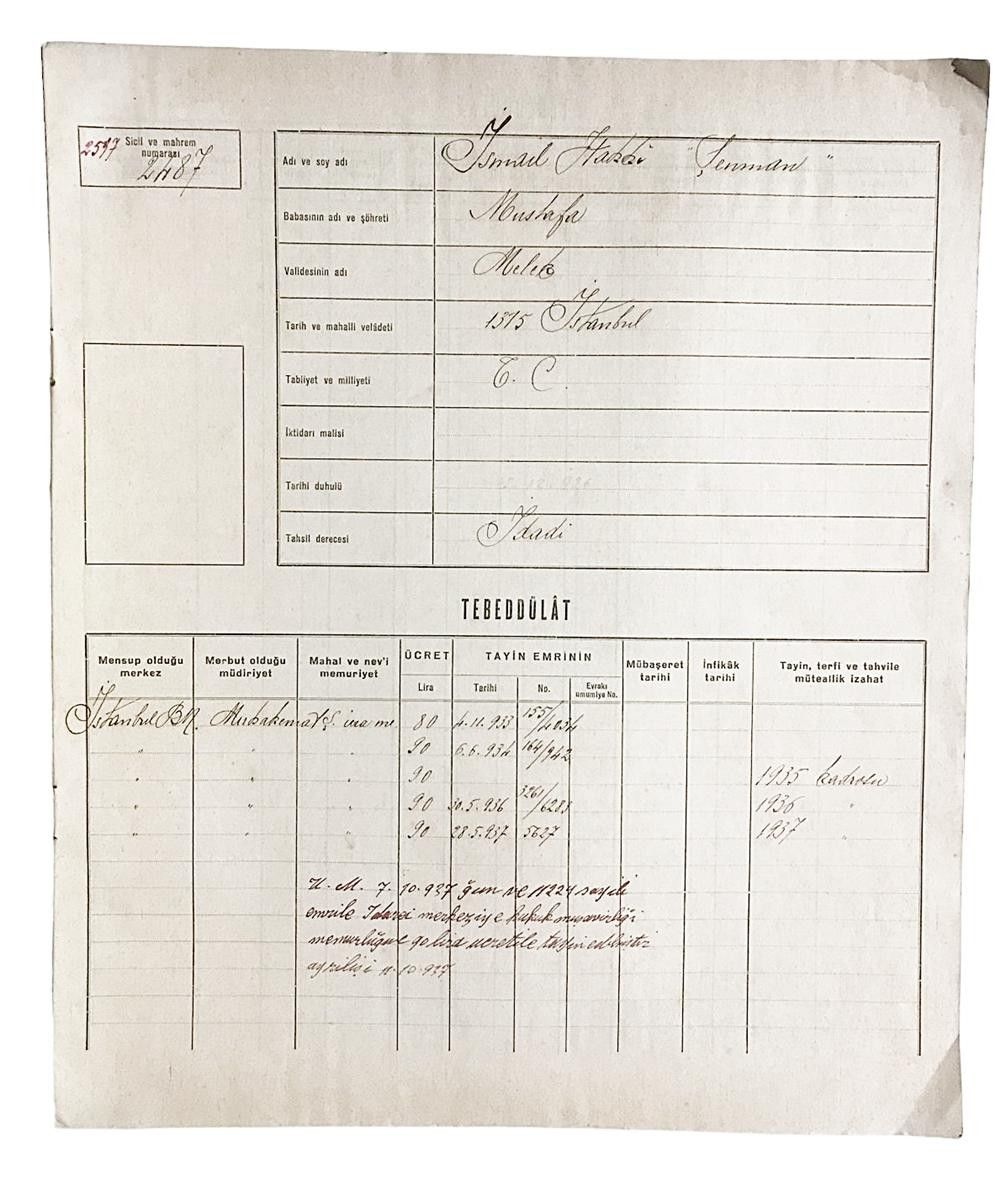 2597 Sicil ve mahrem
numarası
2487
Adı ve soy adı İsmail Hakkı "Şenman"
Babasının adı ve şöhreti Mustafa
Validesinin adı Melek
Tarih ve mahalli velâdeti 1315 İstanbul
Tabiiyet ve milliyeti T. C.
İktidarı malisi
Tarihi duhulü
Tahsil derecesi İdadi
TEBEDDÜLÂT
Mensup olduğu merkez Merbut olduğu müdiriyet Mahal ve nev'i memuriyet ÜCRET Lira TAYİN EMRİNİN Tarihi No. Evrakı umumiye No. Mübaşeret tarihi İnfikâk tarihi Tayin, terfi ve tahvile müteallik izahat
İstanbul Muhakemat 80 4.11.933 155/4054
" " " 90 6.6.934 164/942
" " " 90 1935 kadrosu
" " " 90 30.5.936 3261/6283 1936 "
" " " 90 28.5.937 5627 1937 "
U. M. 7.10.937 gün ve 11224 sayılı
emrile İdarei merkeziye hukuk müşavirliği
memurluğuna 90 lira ücretile tayin edilmiştir
ayrılışı 11.10.937